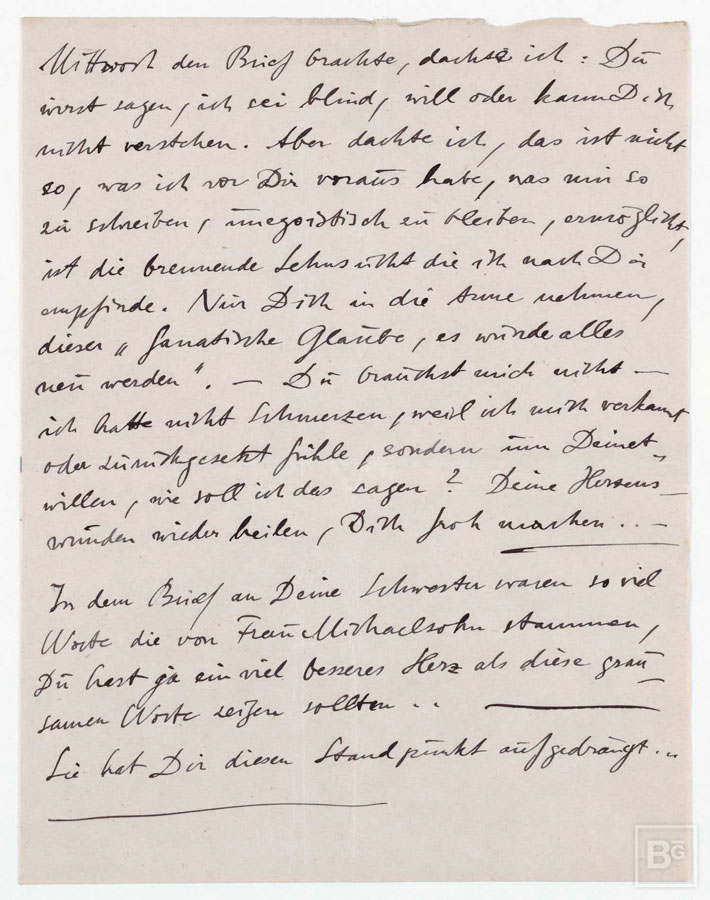 Mittwoch den Brief brachte, dachte ich : Du
wirst sagen, ich sei blind, will oder kann Dich
nicht verstehen. Aber dachte ich, das ist nicht
so, was ich vor Dir voraus habe, was mir so
zu schreiben, unegoistisch zu bleiben, ermöglicht,
ist die brennende Sehnsucht die ich nach Dir
empfinde. Nur Dich in die Arme nehmen,
dieser „fanatische Glaube, es würde alles
neu werden". — Du brauchst mich nicht —
ich hatte nicht Schmerzen, weil ich mich verkannt
oder zurückgesetzt fühle, sondern um Deinet-
willen, wie soll ich das sagen? Deine Herzens-
wunden wieder heilen, Dich froh machen . . —
In dem Brief an Deine Schwester waren so viel
Worte die von Frau Michaelsohn stammen,
Du hast ja ein viel besseres Herz als diese grau-
samen Worte zeigen sollten . .
Sie hat Dir diesen Standpunkt aufgedrängt . .
BG